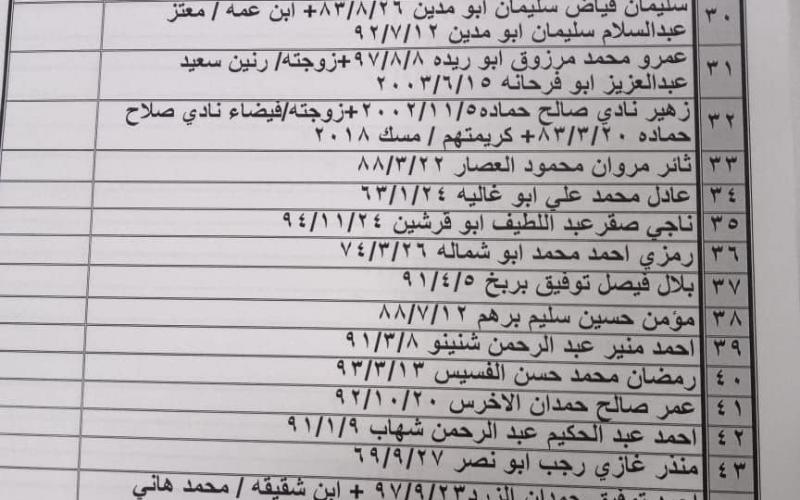 ٣٠ سليمان فياض سليمان ابو مدين ٨٣/٨/٢٦+ ابن عمه / معتز
عبدالسلام سليمان ابو مدين ٩٢/٧/١٢
٣١ عمرو محمد مرزوق ابو ريده ٩٧/٨/٨+زوجته/ رنين سعيد
عبدالعزيز ابو فرحانه ٢٠٠٣/٦/١٥
٣٢ زهير نادي صالح حماده٢٠٠٢/١١/٥+زوجته/فيضاء نادي صلاح
حماده ٨٣/٣/٢٠+ كريمتهم / مسك ٢٠١٨
٣٣ ثائر مروان محمود العصار ٨٨/٣/٢٢
٣٤ عادل محمد علي ابو غاليه ٦٣/١/٢٤
٣٥ ناجي صقرعبد اللطيف ابو قرشين ٩٤/١١/٢٤
٣٦ رمزي احمد محمد ابو شماله ٧٤/٣/٢٦
٣٧ بلال فيصل توفيق بربخ ٩١/٤/٥
٣٨ مؤمن حسين سليم برهم ٨٨/٧/١٢
٣٩ احمد منير عبد الرحمن شنينو ٩١/٣/٨
٤٠ رمضان محمد حسن الفسيس ٩٣/٣/١٣
٤١ عمر صالح حمدان الاخرس ٩٢/١٠/٢٠
٤٢ احمد عبد الحكيم عبد الرحمن شهاب ٩١/١/٩
٤٣ منذر غازي رجب ابو نصر ٦٩/٩/٢٧
توفيق حمدان الزرد٩٧/٩/٢٣ + ابن شقيقه / محمد هاني